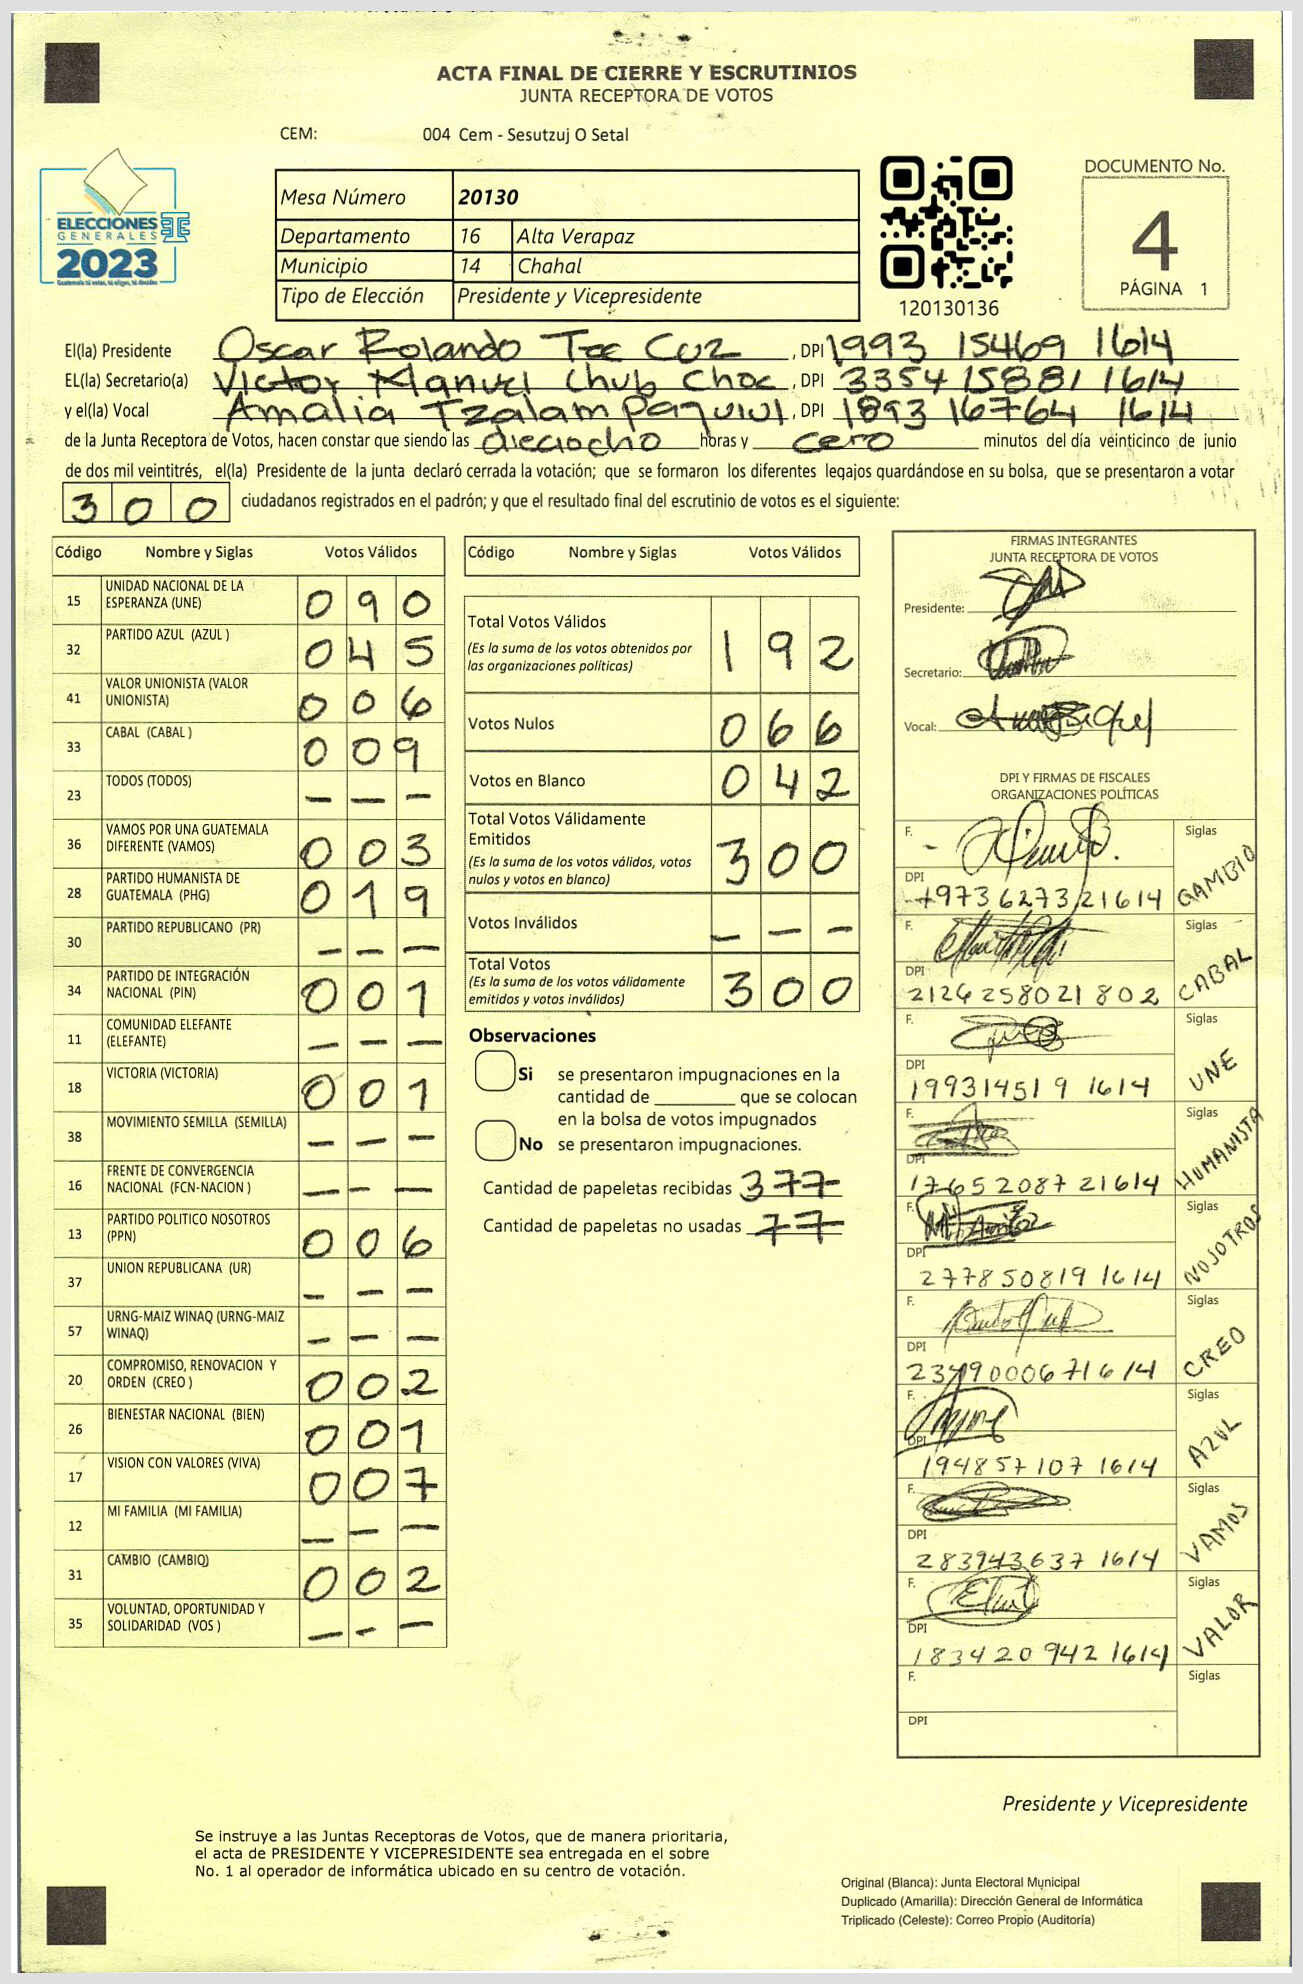 ACTA FINAL DE CIERRE Y ESCRUTINIOS
JUNTA RECEPTORA DE VOTOS
CEM: 004 Cem - Sesutzuj O Setal
ELECCIONES
GENERALES
2023
Guatemala tú votas, tú eliges, tú decides
Mesa Número 20130
Departamento 16 Alta Verapaz
Municipio 14 Chahal
Tipo de Elección Presidente y Vicepresidente
120130136
DOCUMENTO No.
4
PÁGINA 1
El(la) Presidente Oscar Rolando Tec Cuz, DPI 1993 15469 1614
EL(la) Secretario(a) Victor Manuel Chub Choc, DPI 3354 15881 1614
y el(la) Vocal Amalia Tzalam Paquiul, DPI 1893 16764 1614
de la Junta Receptora de Votos, hacen constar que siendo las dieciocho horas y cero minutos del día veinticinco de junio
de dos mil veintitrés, el(la) Presidente de la junta declaró cerrada la votación; que se formaron los diferentes legajos quardándose en su bolsa, que se presentaron a votar
300 ciudadanos registrados en el padrón; y que el resultado final del escrutinio de votos es el siguiente:
Código Nombre y Siglas Votos Válidos
15 UNIDAD NACIONAL DE LA ESPERANZA (UNE) 090
32 PARTIDO AZUL (AZUL ) 045
41 VALOR UNIONISTA (VALOR UNIONISTA) 006
33 CABAL (CABAL ) 009
23 TODOS (TODOS) — — —
36 VAMOS POR UNA GUATEMALA DIFERENTE (VAMOS) 003
28 PARTIDO HUMANISTA DE GUATEMALA (PHG) 019
30 PARTIDO REPUBLICANO (PR) — — —
34 PARTIDO DE INTEGRACIÓN NACIONAL (PIN) 001
11 COMUNIDAD ELEFANTE (ELEFANTE) — — —
18 VICTORIA (VICTORIA) 001
38 MOVIMIENTO SEMILLA (SEMILLA) — — —
16 FRENTE DE CONVERGENCIA NACIONAL (FCN-NACION ) — — —
13 PARTIDO POLITICO NOSOTROS (PPN) 006
37 UNION REPUBLICANA (UR) — — —
57 URNG-MAIZ WINAQ (URNG-MAIZ WINAQ) — — —
20 COMPROMISO, RENOVACION Y ORDEN (CREO ) 002
26 BIENESTAR NACIONAL (BIEN) 001
17 VISION CON VALORES (VIVA) 007
12 MI FAMILIA (MI FAMILIA) — — —
31 CAMBIO (CAMBIO) 002
35 VOLUNTAD, OPORTUNIDAD Y SOLIDARIDAD (VOS ) — — —
Código Nombre y Siglas Votos Válidos
Total Votos Válidos 192
(Es la suma de los votos obtenidos por
las organizaciones políticas)
Votos Nulos 066
Votos en Blanco 042
Total Votos Válidamente
Emitidos 300
(Es la suma de los votos válidos, votos
nulos y votos en blanco)
Votos Inválidos — — —
Total Votos 300
(Es la suma de los votos válidamente
emitidos y votos inválidos)
Observaciones
Si se presentaron impugnaciones en la
cantidad de ________ que se colocan
en la bolsa de votos impugnados
No se presentaron impugnaciones.
Cantidad de papeletas recibidas 377
Cantidad de papeletas no usadas 77
FIRMAS INTEGRANTES
JUNTA RECEPTORA DE VOTOS
Presidente:
Secretario:
Vocal:
DPI Y FIRMAS DE FISCALES
ORGANIZACIONES POLÍTICAS
F. Siglas CAMBIO
DPI 1973627321614
F. Siglas CABAL
DPI 2126258021802
F. Siglas UNE
DPI 199314519 1614
F. Siglas HUMANISTA
DPI 1765208721614
F. Siglas NOSOTROS
DPI 277850819 1614
F. Siglas CREO
DPI 2349000671614
F. Siglas AZUL
DPI 194857107 1614
F. Siglas VAMOS
DPI 283943637 1614
F. Siglas VALOR
DPI 183420942 1614
F. Siglas
DPI
Presidente y Vicepresidente
Se instruye a las Juntas Receptoras de Votos, que de manera prioritaria,
el acta de PRESIDENTE Y VICEPRESIDENTE sea entregada en el sobre
No. 1 al operador de informática ubicado en su centro de votación.
Original (Blanca): Junta Electoral Municipal
Duplicado (Amarilla): Dirección General de Informática
Triplicado (Celeste): Correo Propio (Auditoría)